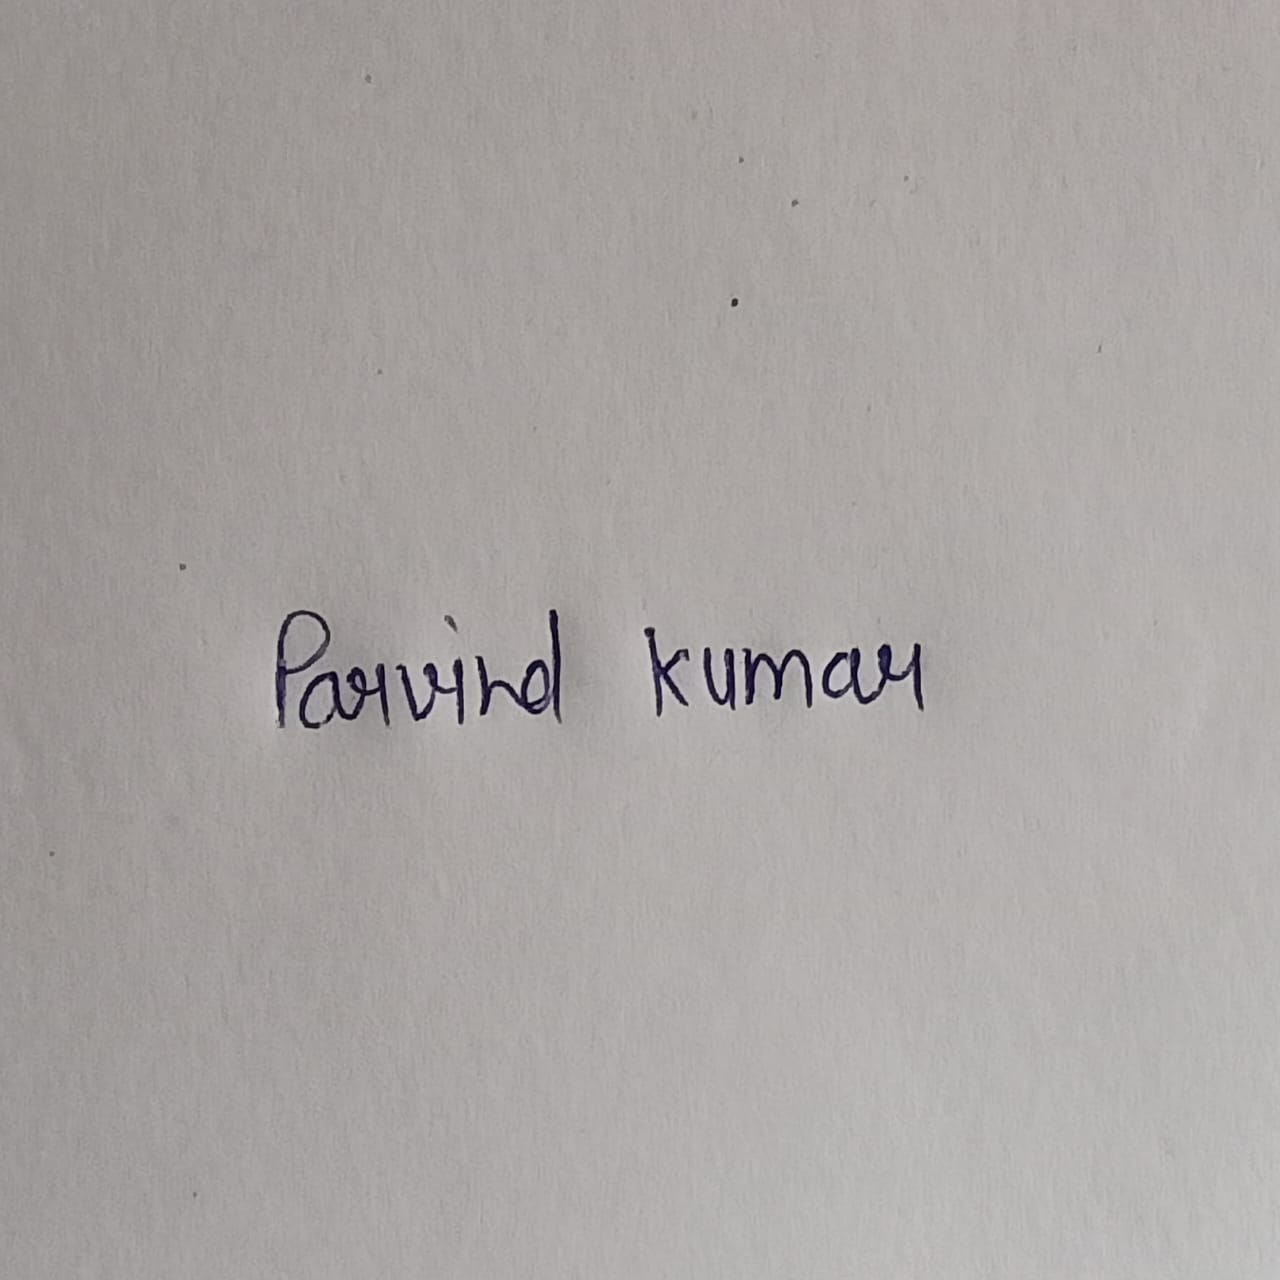 Parvind kumar